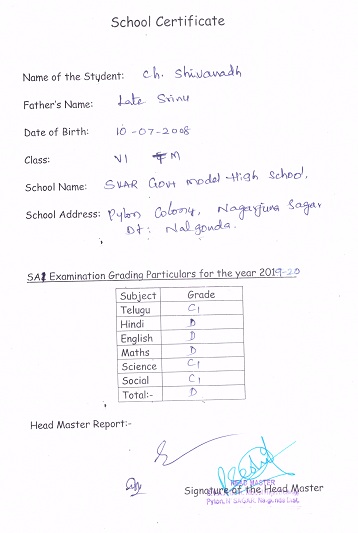 School Certificate
Name of the Student: Ch. Shivanadh
Father's Name: Late Srinu
Date of Birth: 10-07-2008
Class: VI M
School Name: Govt model High School,
School Address: Pylon Colony, Nagarjuna Sagar
Dt: Nalgonda.
SA1 Examination Grading Particulars for the year 2019-20
Subject Grade
Telugu C1
Hindi D
English D
Maths D
Science C1
Social C1
Total:- D
Head Master Report:-
HEAD MASTER
Signature of the Head Master
Pylon, N SAGAR, Nalgonda Dist.